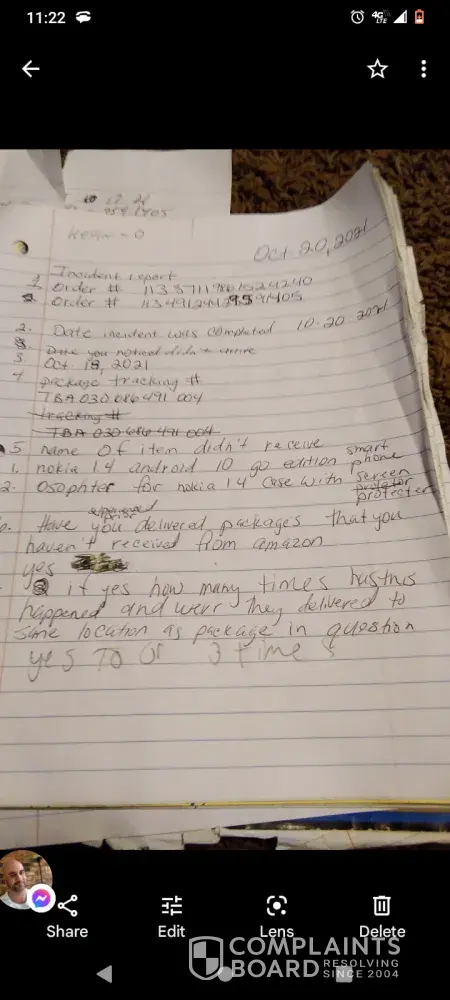 11:22
4G
LTE
Oct 20, 2021
Incident report
1. Order #
2. Order #
2. Date incident was completed 10-20-2021
3. Date you noticed didn't arrive
3 Oct 18, 2021
4 package tracking #
TBA 030 686 491 004
tracking #
TBA 030 686 491 004
5 name of item didn't receive
1. nokia 1.4 android 10 go edition smart phone
2. Osophter for nokia 1.4 case with screen
protecter
Have you delivered packages that you
haven't received from amazon
yes
if yes how many times hasthis
happened and werr they delivered to
same location as package in question
yes TO or 3 times
Share
Edit
Lens
Delete
COMPLAINTS
BOARD
RESOLVING
SINCE 2004